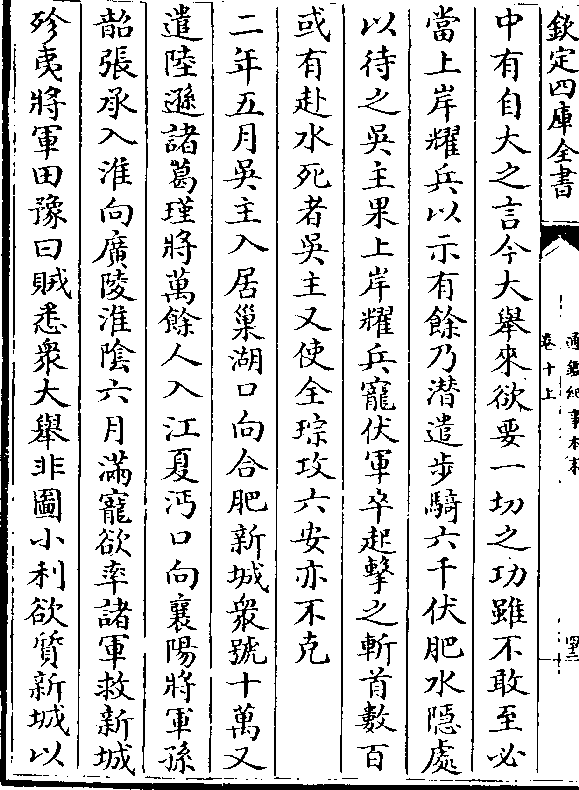 欽定四庫全書
通鑑紀事本末
卷十上
中有自大之言今大舉來欲要一切之功雖不敢至必
當上岸耀兵以示有餘乃潛遣步騎六千伏肥水隱處
以待之吳主果上岸耀兵寵伏軍卒起擊之斬首數百
或有赴水死者吳主又使全琮攻六安亦不克
二年五月吳主入居巢湖口向合肥新城衆號十萬又
遣陸遜諸葛瑾將萬餘人入江夏沔口向襄陽將軍孫
韶張承入淮向廣陵淮陰六月滿寵欲率諸軍救新城
殄夷將軍田豫曰賊悉衆大舉非圖小利欲質新城以